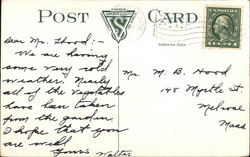 POST CARD
Address Only
Dear Mr. Hood:-
We are having
some very cold
weather. Nearly
all of the vegetables
have been taken
from the garden.
I hope that you
are well
Yours Walter
Mr. M. B. Hood
145 Myrtle St
Melrose
Mass